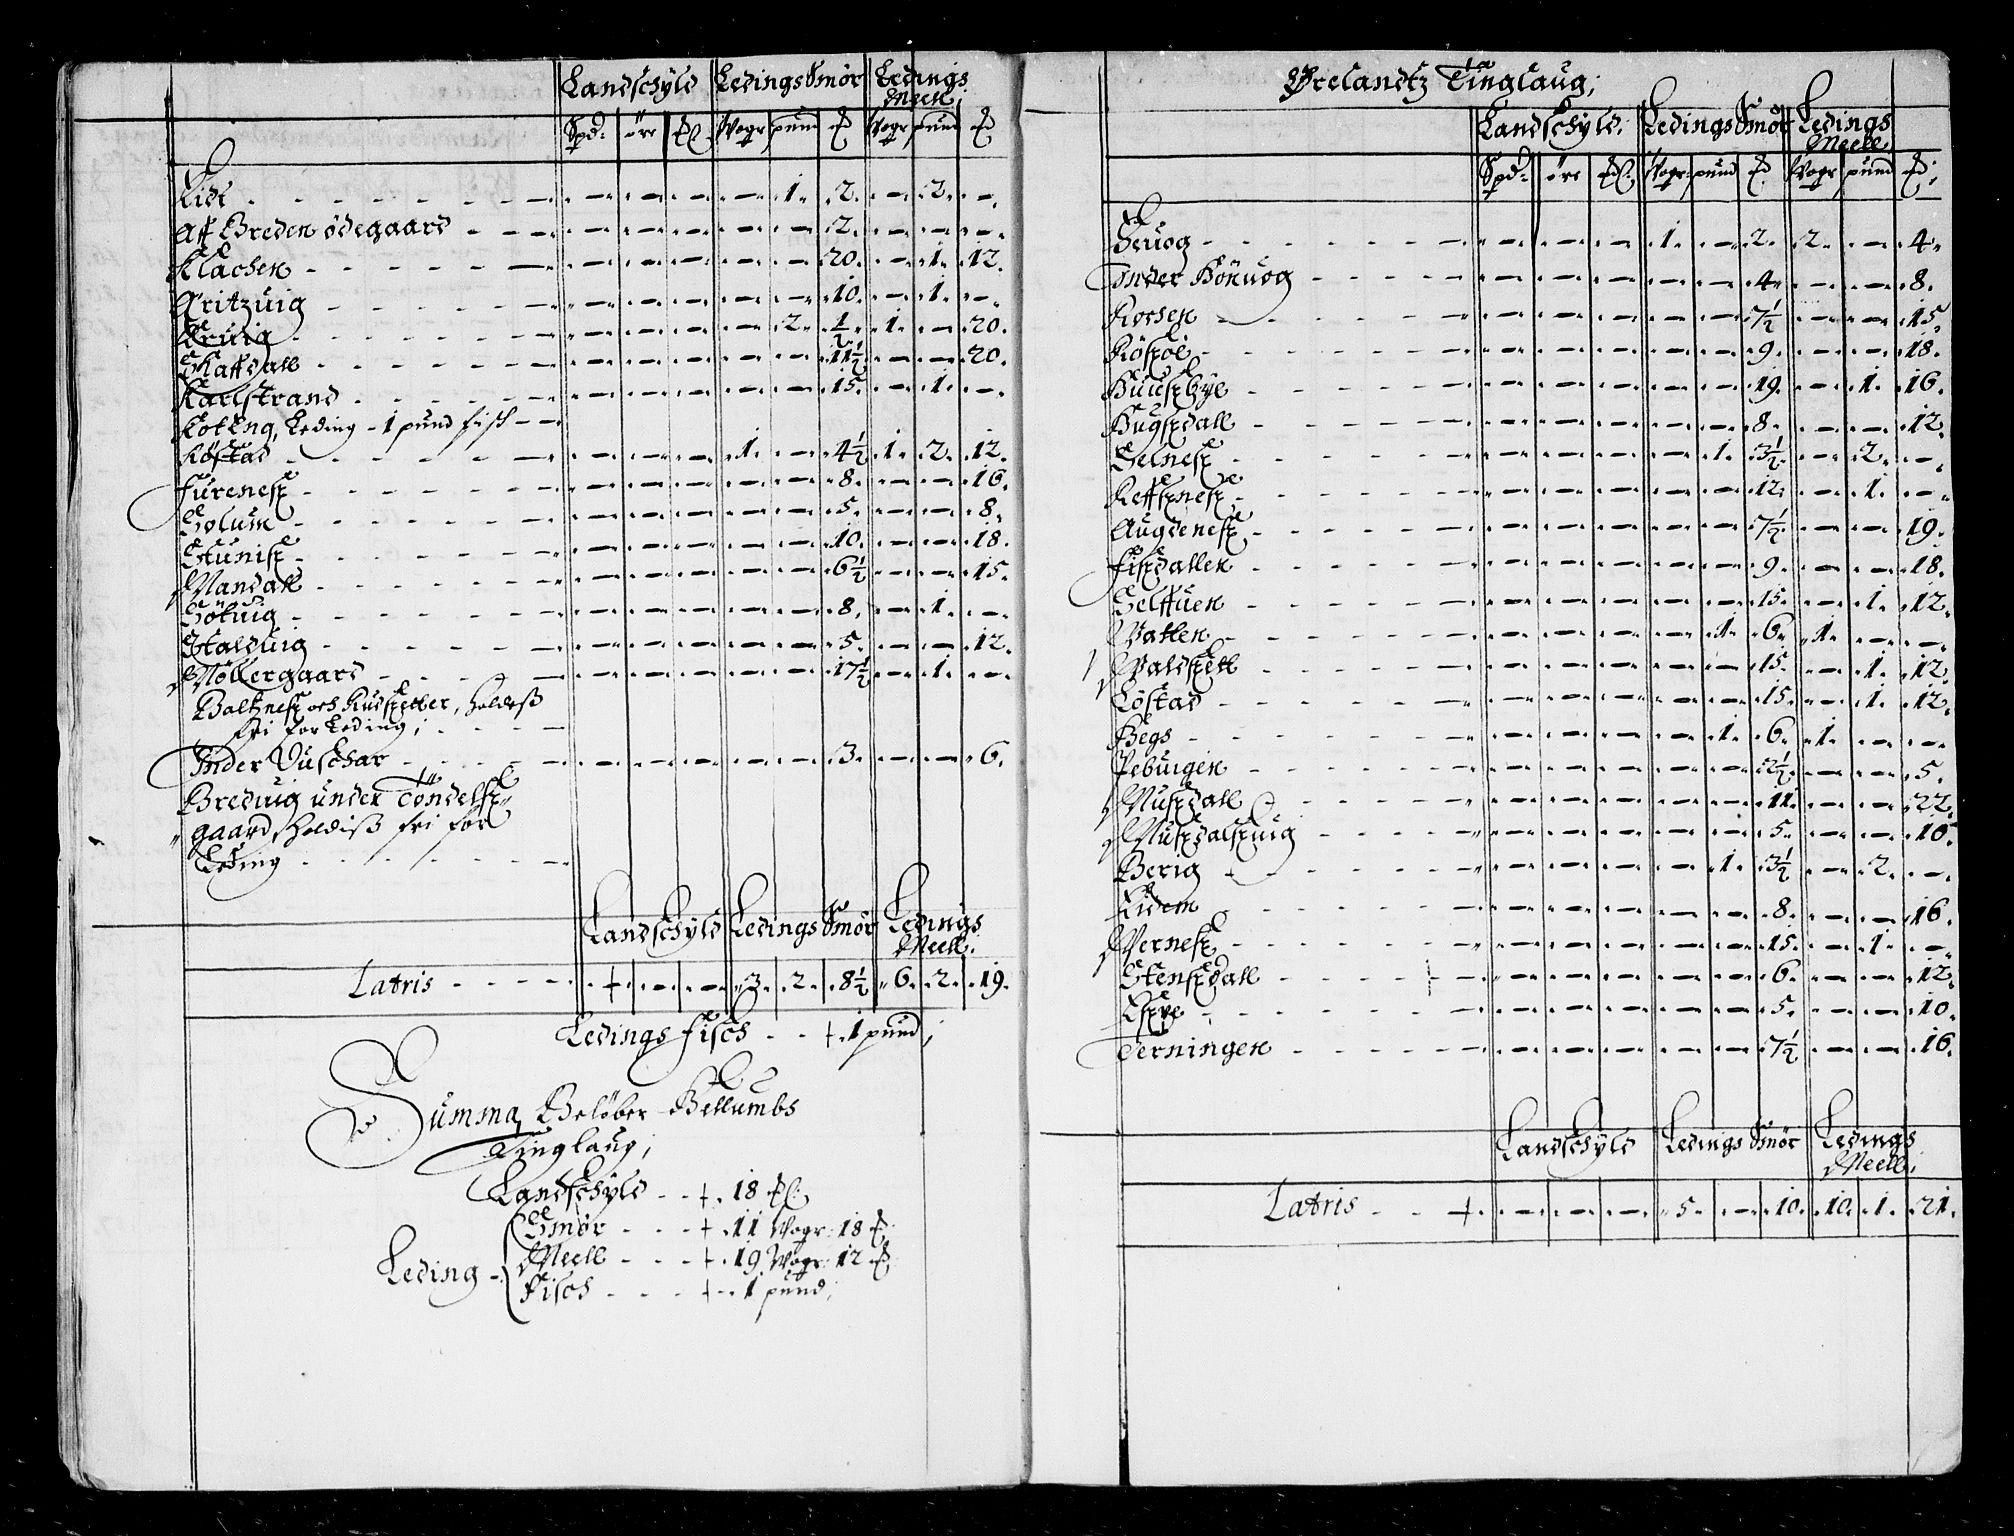 Landschyld Ledings Smör Ledings Meell
Spd: öre Vogr pund Vogr pund
Lide - - - 1. 2. - 2. -
Aff Breden ödegaard - - - 2. - - -
Klachen - - - 20. - 1. 12.
Aritzuig - - - 10. - 1. -
Eruig - - - 2. ½. 1. - 20.
Skaffdall - - - 11½. - - 20.
Karlstrand - - - 15. - 1. -
Koteng, Leding - 1 pund fisch - -
Köstad - - - 1. - 4½. 1. 2. 12.
furenes - - - 8. - - 16.
Solum - - - 5. - - 8.
Stunis - - - 10. - - 18.
Mandall - - - 6½. - - 15.
Götuig - - - 8. - 1. -
Stalduig - - - 5. - - 12.
Möllergaard - - - 17½. - 1. -
Baltznes och Rudsetter, holdess
fri for Leding;
Inder Duschar - - - 3. - - 6.
Breduig under Töndels
gaard, holdiss fri for
Leding
Landschyld Ledings Smör Ledings Meell.
Latris - - - 3. 2. 8½. 6. 2. 19.
Ledings fisch - - 1 pund;
Summa Belöber Bettumbs
Tinglaug;
Landschyld - - 18
Smör - - - 11 Vogr: 18
Leding - Meell - - - 19 Vogr: 12
Fisch - - - 1 pund;
Ørelandtz Tinglaug;
Landschyld: Ledings Smör Ledings Meell
Spd: öre Vogr: pund Vogr pund
Seuog - - - 1. - 2. 2. - 4.
Inder Hönuog - - - 4. - - 8.
Rochen - - - 7½. - - 15.
Rösöl - - - 9. - - 18.
Huusbye - - - 19. - 1. 16.
Hugsdall - - - 8. - - 12.
Selnes - - - 1. 3½. - 2. -
Reffsnes - - - 12. - 1. -
Augdenes - - - 7½. - - 19.
Fisdallen - - - 9. - - 18.
Selffuen - - - 15. - 1. 12.
Vatlen - - - 1. 6. 1. - -
Valdsett - - - 15. - 1. 12.
Löstad - - - 15. - 1. 12.
Begs - - - 1. 6. 1. - -
Pebuigen - - - 2½. - - 5.
Musdall - - - 11. - - 22.
Musdalsuig - - - 5. - - 10.
Berig - - - 1. 3½. - 2. -
Eidem - - - 8. - - 16.
Vernes - - - 15. - 1. -
Stensdall - - - 6. - - 12.
Espe - - - 5. - - 10.
Terningen - - - 7½. - - 16.
Landschyld Ledings Smör Ledings Meell.
Latris - - - 5. - 10. 10. 1. 21.